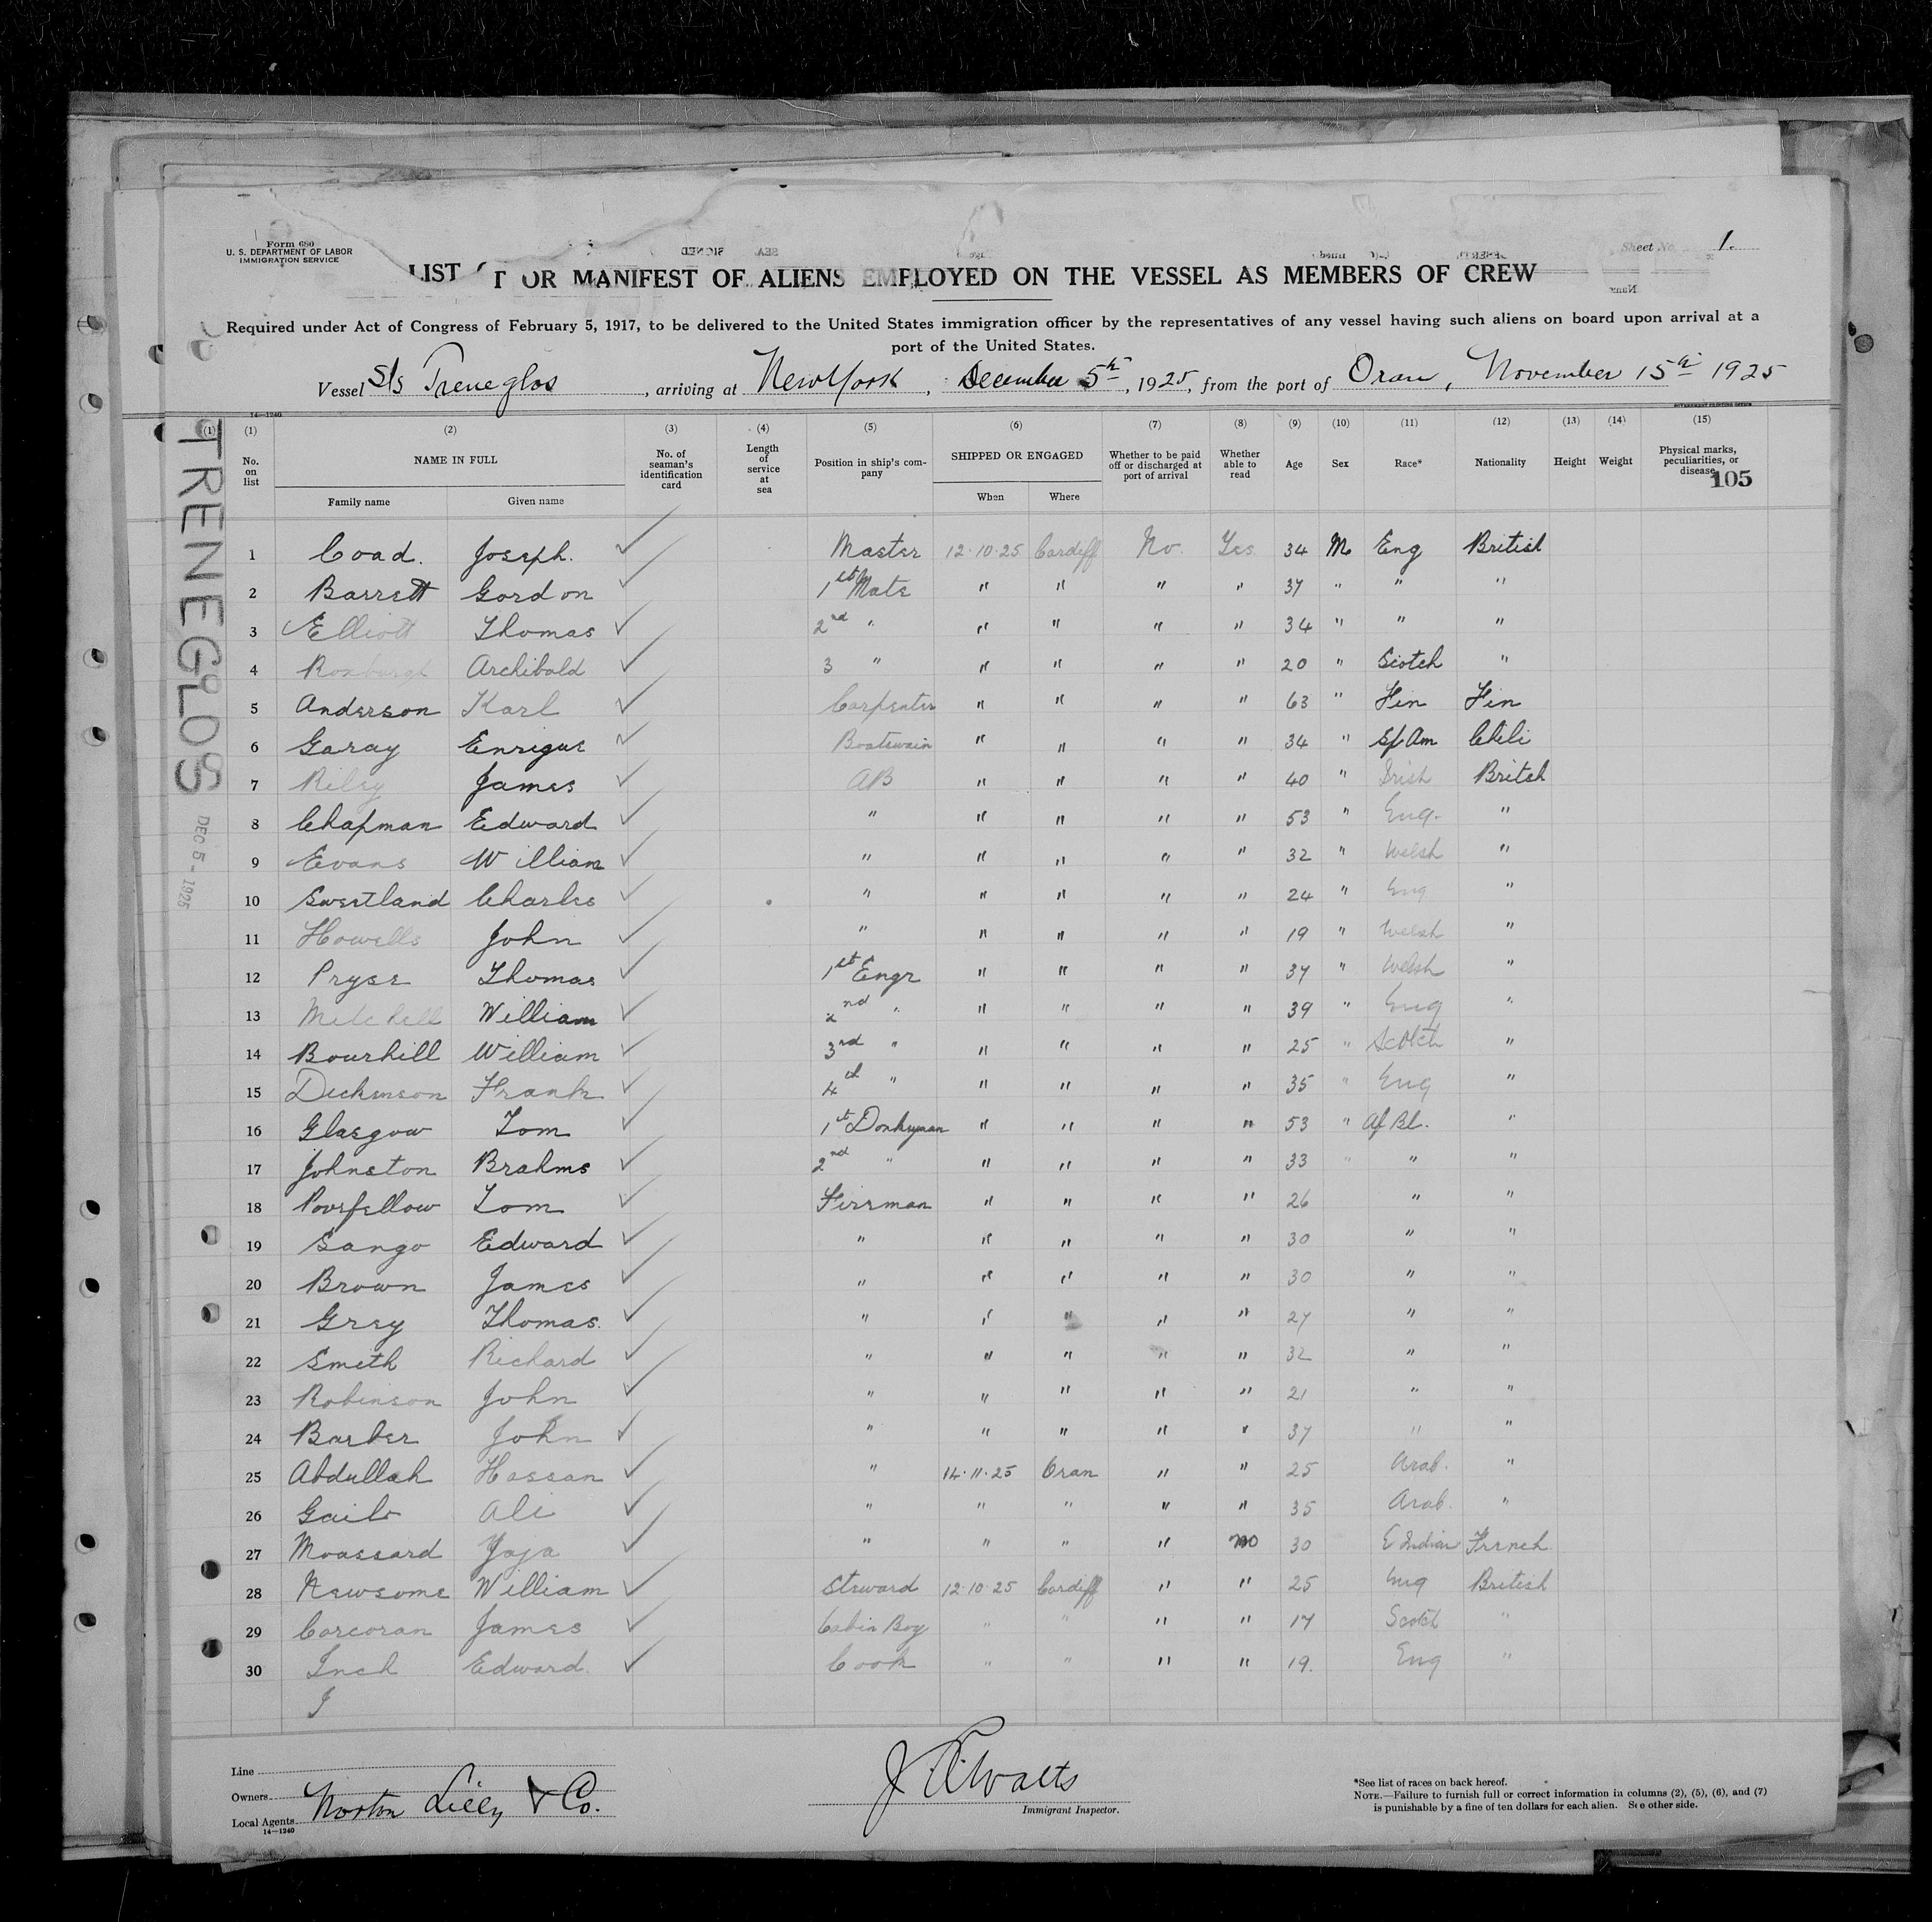 Form 680
U. S. DEPARTMENT OF LABOR
IMMIGRATION SERVICE
Sheet No. 1.
LIST OR MANIFEST OF ALIENS EMPLOYED ON THE VESSEL AS MEMBERS OF CREW
Required under Act of Congress of February 5, 1917, to be delivered to the United States immigration officer by the representatives of any vessel having such aliens on board upon arrival at a
port of the United States.
Vessel S/s Treneglos, arriving at New York, December 5th, 1925, from the port of Oran, November 15th 1925
14—1240
GOVERNMENT PRINTING OFFICE
TRENEGLOS
DEC 5 - 1925
(1) (1) (2) (3) (4) (5) (6) (7) (8) (9) (10) (11) (12) (13) (14) (15)
No. on list NAME IN FULL No. of seaman's identification card Length of service at sea Position in ship's company SHIPPED OR ENGAGED Whether to be paid off or discharged at port of arrival Whether able to read Age Sex Race* Nationality Height Weight Physical marks, peculiarities, or disease
105
Family name Given name When Where
1 Coad. Joseph. ✓ Master 12.10.25 Cardiff No. Yes 34 M Eng British
2 Barrett Gordon ✓ 1st Mate " " " " 37 " " "
3 Elliott Thomas ✓ 2nd " " " " " 34 " " "
4 Roxburgh Archibald ✓ 3 " " " " " 20 " Scotch "
5 Anderson Karl ✓ Carpenter " " " " 63 " Fin Fin
6 Garay Enrique ✓ Boatswain " " " " 34 " Sp Am Chili
7 Riley James ✓ AB " " " " 40 " Irish British
8 Chapman Edward ✓ " " " " " 53 " Eng. "
9 Evans William ✓ " " " " " 32 " Welsh "
10 Sweetland Charles ✓ " " " " " 24 " Eng "
11 Howells John ✓ " " " " " 19 " Welsh "
12 Pryse Thomas ✓ 1st Engr " " " " 37 " Welsh "
13 Mitchell William ✓ 2nd " " " " " 39 " Eng "
14 Bourhill William ✓ 3rd " " " " " 25 " Scotch "
15 Dickinson Frank ✓ 4th " " " " " 35 " Eng "
16 Glasgow Tom ✓ 1st Donkeyman " " " " 53 " Af Bl. "
17 Johnston Brahms ✓ 2nd " " " " " 33 " " "
18 Poorfellow Tom ✓ Fireman " " " " 26 " "
19 Sango Edward ✓ " " " " " 30 " "
20 Brown James ✓ " " " " " 30 " "
21 Grey Thomas. ✓ " " " " " 27 " "
22 Smith Richard ✓ " " " " " 32 " "
23 Robinson John ✓ " " " " " 21 " "
24 Barber John ✓ " " " " " 37 " "
25 Abdullah Hassan ✓ " 14.11.25 Oran " " 25 Arab. "
26 Gaib Ali ✓ " " " " " 35 Arab. "
27 Moassard Yaja ✓ " " " " no 30 E Indian French
28 Newsome William ✓ Steward 12.10.25 Cardiff " " 25 Eng British
29 Corcoran James ✓ Cabin Boy " " " " 17 Scotch "
30 Inch Edward. ✓ Cook " " " " 19. Eng "
J
Line
Owners
Local Agents Norton Lilly & Co.
14—1240
Immigrant Inspector.
*See list of races on back hereof.
NOTE.—Failure to furnish full or correct information in columns (2), (5), (6), and (7)
is punishable by a fine of ten dollars for each alien. See other side.